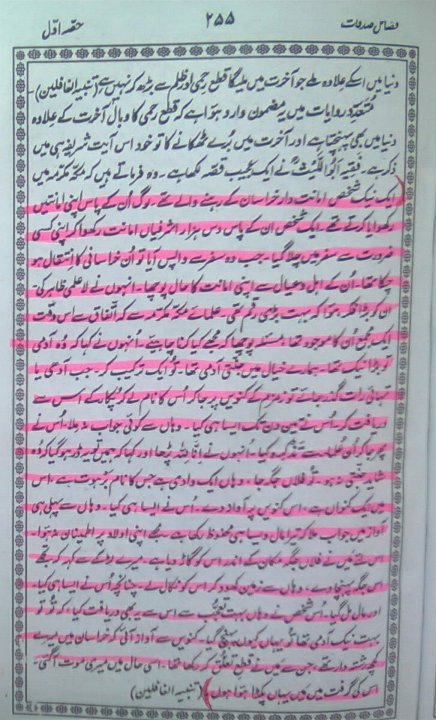 فضائل صدقات ۲۵۵ حصّہ اوّل
دنیا میں اسکے علاوہ ملے جو آخرت میں ملیگا قطع رحمی اور ظلم سے بڑھ کر نہیں ہے (تنبیہ الغافلین)
متعدد روایات میں یہ مضمون وارد ہوا ہے کہ قطع رحمی کا وبال آخرت کے علاوہ
دنیا میں بھی پہنچتا ہے اور آخرت میں بُرے ٹھکانے کا تو خود اس آیت شریفہ ہی میں
ذکر ہے۔ فقیہ ابواللیثؒ نے ایک عجیب قصّہ لکھا ہے۔ وہ فرماتے ہیں کہ مکہ مکرمہ میں
ایک نیک شخص امانت دار خراسان کے رہنے والے تھے۔ لوگ اُن کے پاس اپنی امانتیں
رکھوایا کرتے تھے۔ ایک شخص ان کے پاس دس ہزار اشرفیاں امانت رکھوا کر اپنی کسی
ضرورت سے سفر میں چلا گیا۔ جب وہ سفر سے واپس آیا تو اُن خراسانی کا انتقال ہو
چکا تھا۔ اُن کے اہل و عیال سے اپنی امانت کا حال پوچھا۔ انہوں نے لاعلمی ظاہر کی
ان کو بڑا فکر ہوا کہ بہت بڑی رقم تھی۔ علمائے مکہ مکرمہ سے کہ اتفاق سے اس وقت
ایک مجمع اُن کا موجود تھا۔ مسئلہ پوچھا کہ مجھے کیا کرنا چاہیئے۔ انہوں نے کہا کہ وہ آدمی
تو بڑا نیک تھا۔ ہمارے خیال میں جنتی آدمی تھا۔ تو ایک ترکیب کر۔ جب آدھی یا
تہائی رات گذر جائے تو زمزم کے کنویں پر جا کر اُس کا نام لے کر پکار کے اس سے
دریافت کر۔ اُس نے تین دن تک ایسا ہی کیا۔ وہاں سے کوئی جواب نہ ملا۔ اُس نے
پھر جا کر اُن علماء سے تذکرہ کیا۔ اُنہوں نے اِنَّا لِلّٰہ پڑھا اور کہا کہ ہمیں تو یہ ڈر ہو گیا کہ وہ
شاید جنتی نہ ہو۔ تو فلاں جگہ جا۔ وہاں ایک وادی ہے جس کا نام برہوت ہے۔ اس
میں ایک کنواں ہے۔ اس کنویں پر آواز دے۔ اُس نے ایسا ہی کیا۔ وہاں سے پہلی ہی
آواز میں جواب ملا کہ تیرا مال ویسا ہی محفوظ رکھا ہے۔ مجھے اپنی اولاد پر اطمینان نہ ہوا۔
اس لئے میں نے فلاں جگہ مکان کے اندر اس کو گاڑ دیا ہے۔ میرے لڑکے سے کہہ کہ تجھے
اس جگہ پہنچا دے۔ وہاں سے زمین کھود کر اس کو نکال لے۔ چنانچہ اُس نے ایسا ہی کیا۔
اور مال مل گیا۔ اُس شخص نے وہاں بہت تعجب سے اس سے یہ بھی دریافت کیا۔ کہ تُو تو
بہت نیک آدمی تھا تُو یہاں کیوں پہنچ گیا۔ کنویں سے آواز آئی کہ خراسان میں میرے
کچھ رشتہ دار تھے۔ جن سے میں نے قطع تعلق کر رکھا تھا۔ اسی حال میں میری موت آ گئی۔
اس کی گرفت میں میں یہاں پکڑا ہوا ہوں (تنبیہ الغافلین)